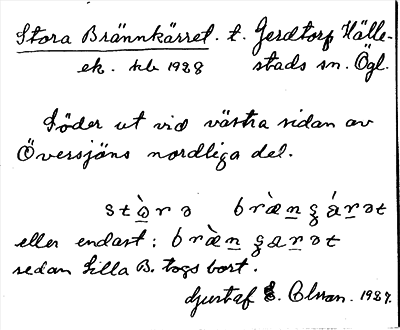 Stora Brännkärret. t. Gerdtorp Hälle-
ek. kb 1928 stads sn. Ögl.
Söder ut vid västra sidan av
Översjöns nordliga del.
stòrə bræ̀nʂárət
eller endast: bræ̀nʂarət
sedan Lilla B. togs bort.
Gustaf E. Olsson. 1927.